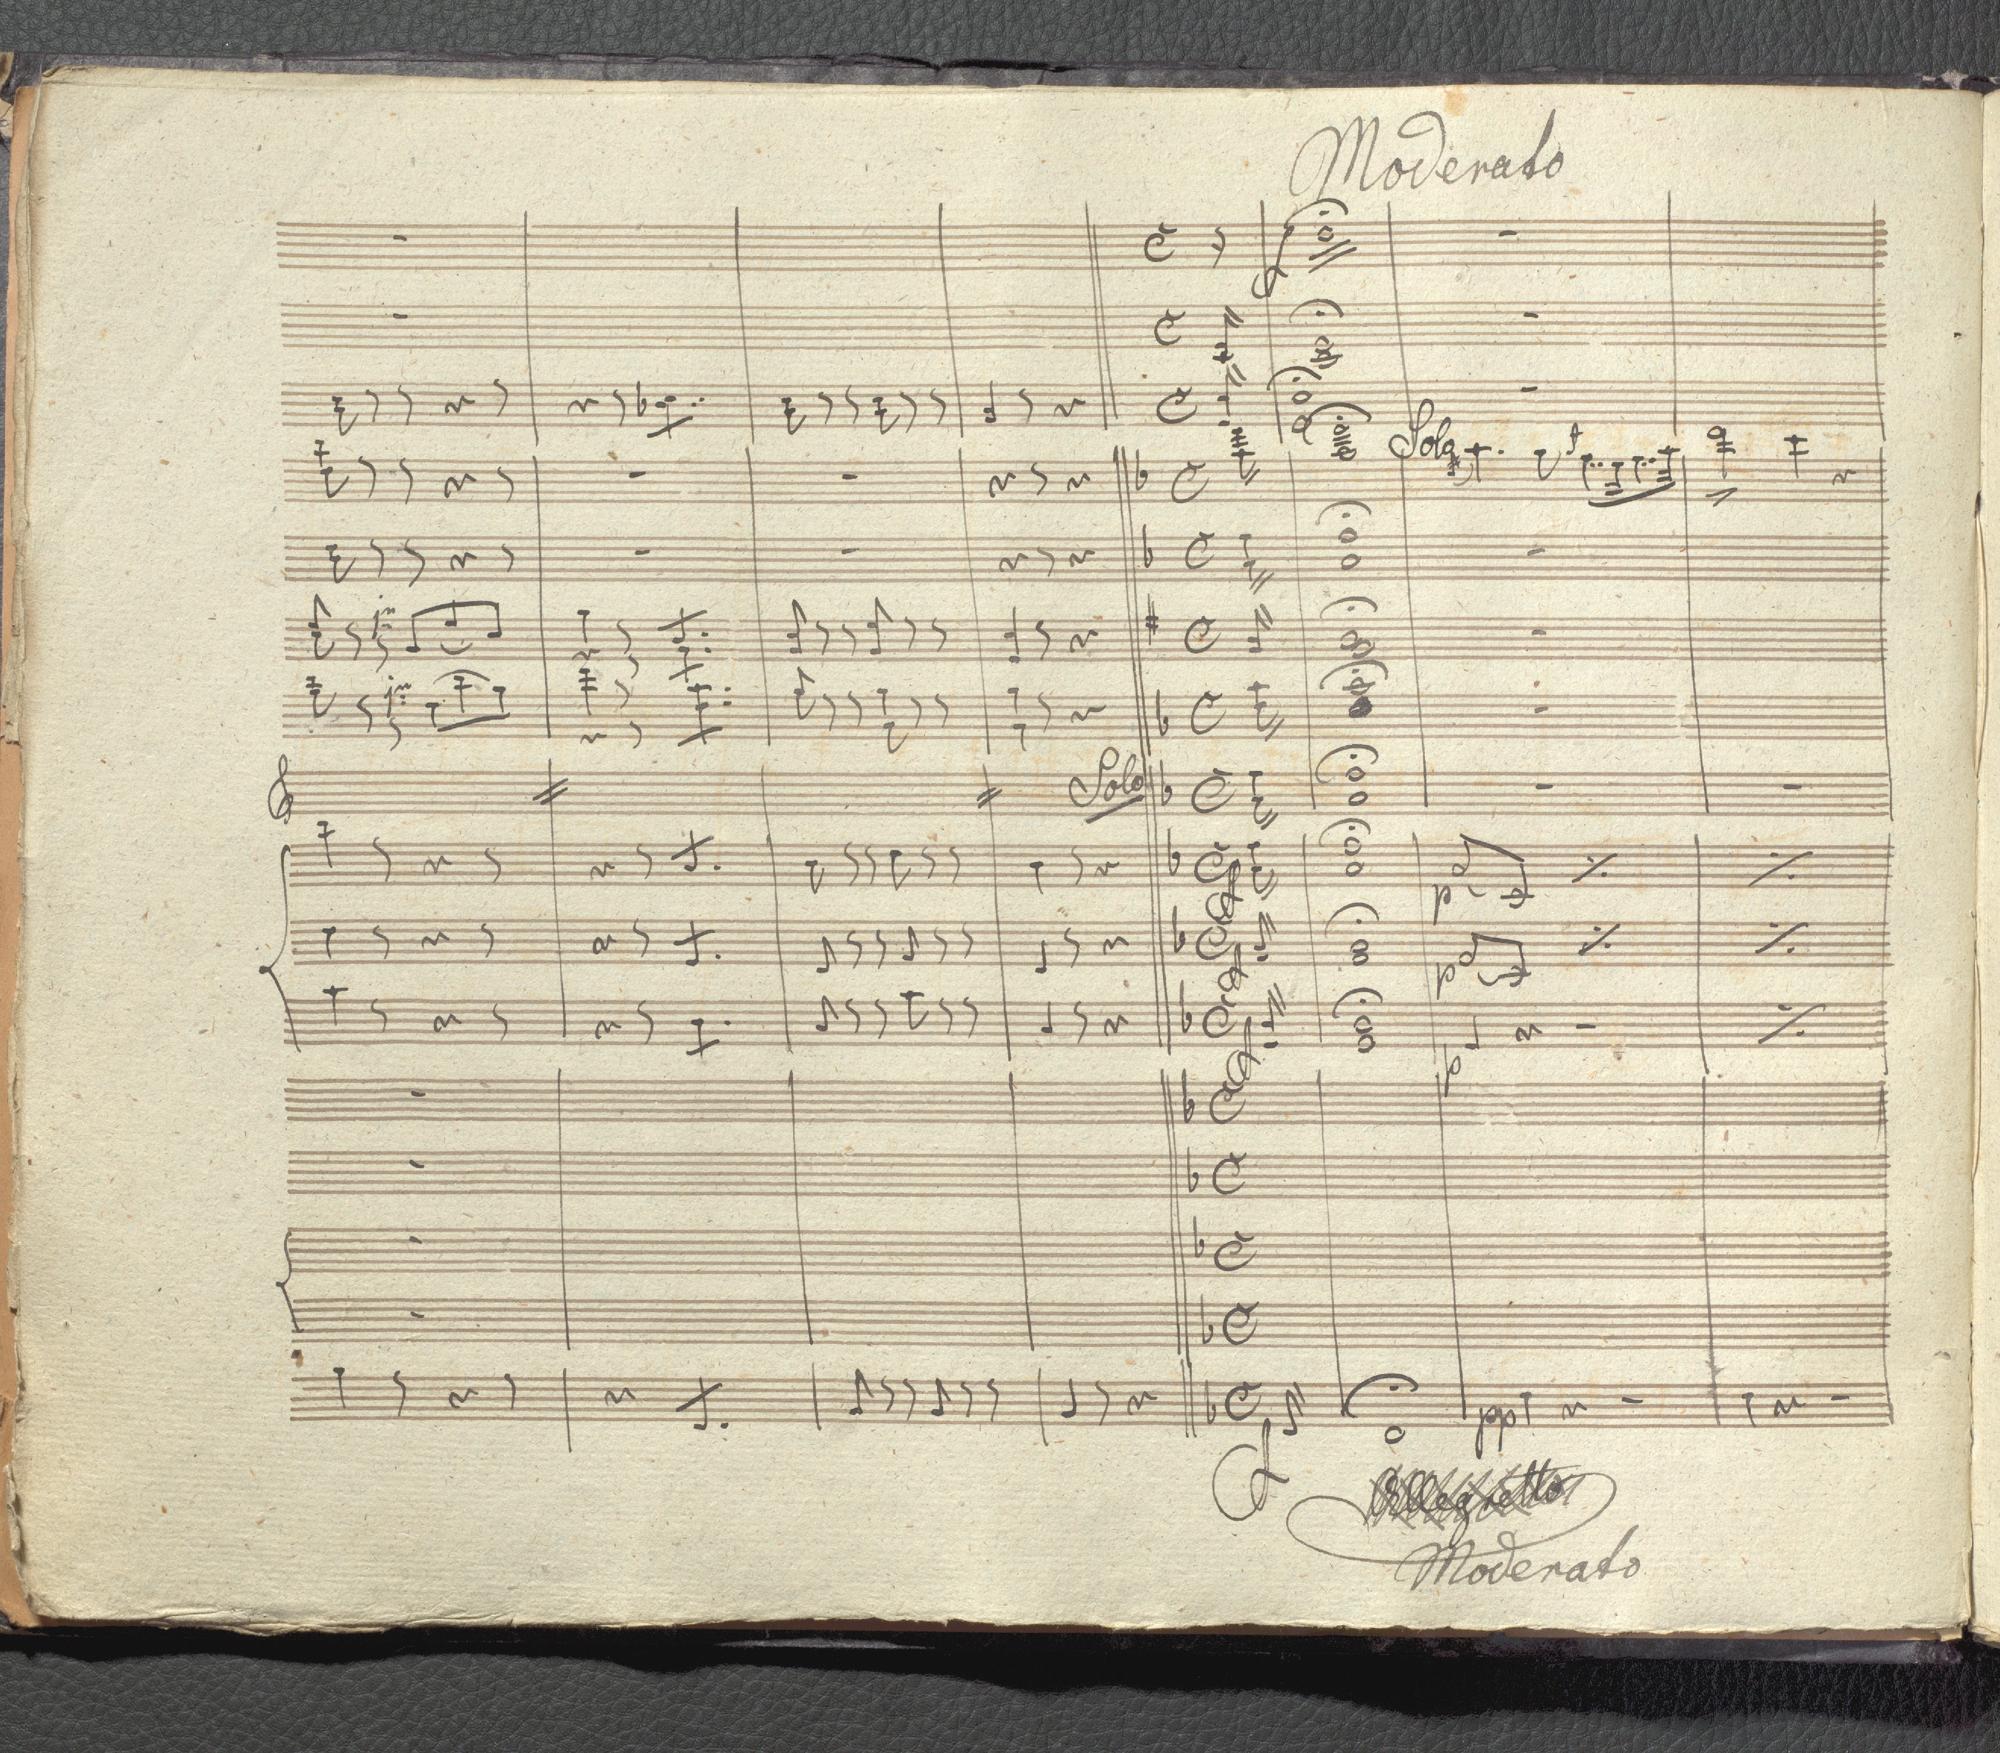 Moderato
Solo
Solo
p
p
p
pp
Allegretto
Moderato